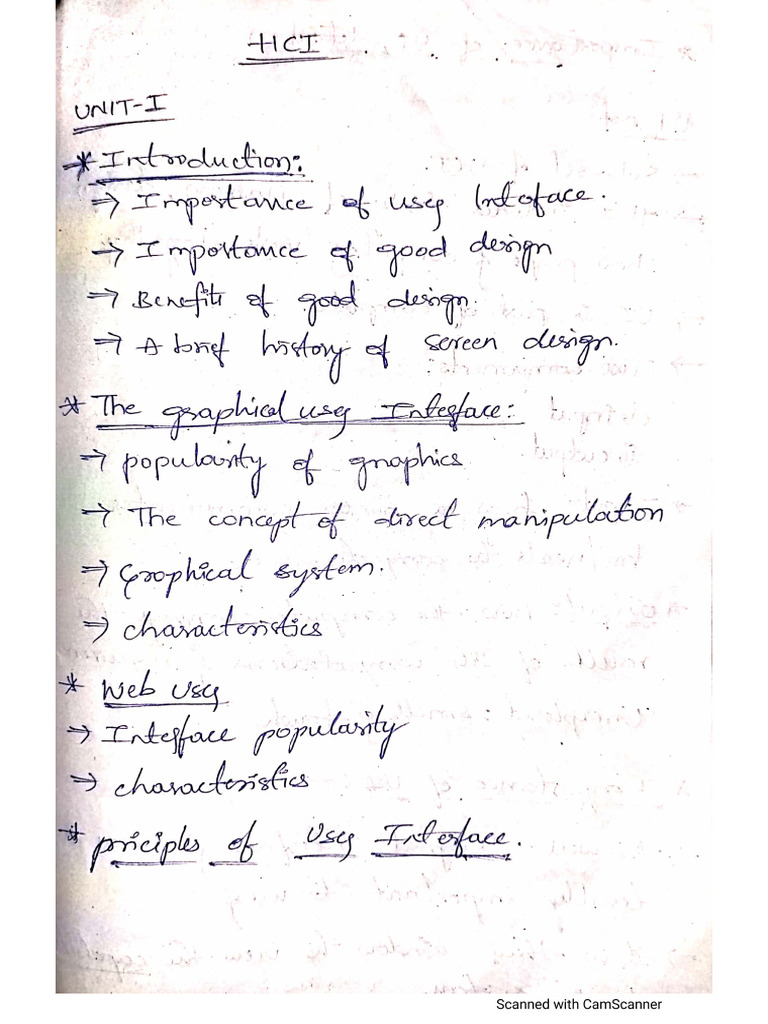 HCI
UNIT-I
* Introduction:
→ Importance of user Interface.
→ Importance of good design
→ Benefits of good design.
→ A brief history of screen design.
* The graphical user Interface:
→ popularity of graphics
→ The concept of direct manipulation
→ Graphical system.
→ characteristics
* Web User
→ Interface popularity
→ characteristics
* priciples of User Interface.
Scanned with CamScanner